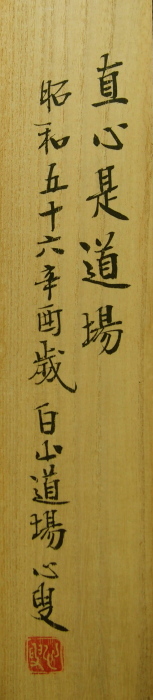 直心是道場
昭和五十六辛酉歳 白山道場心叟